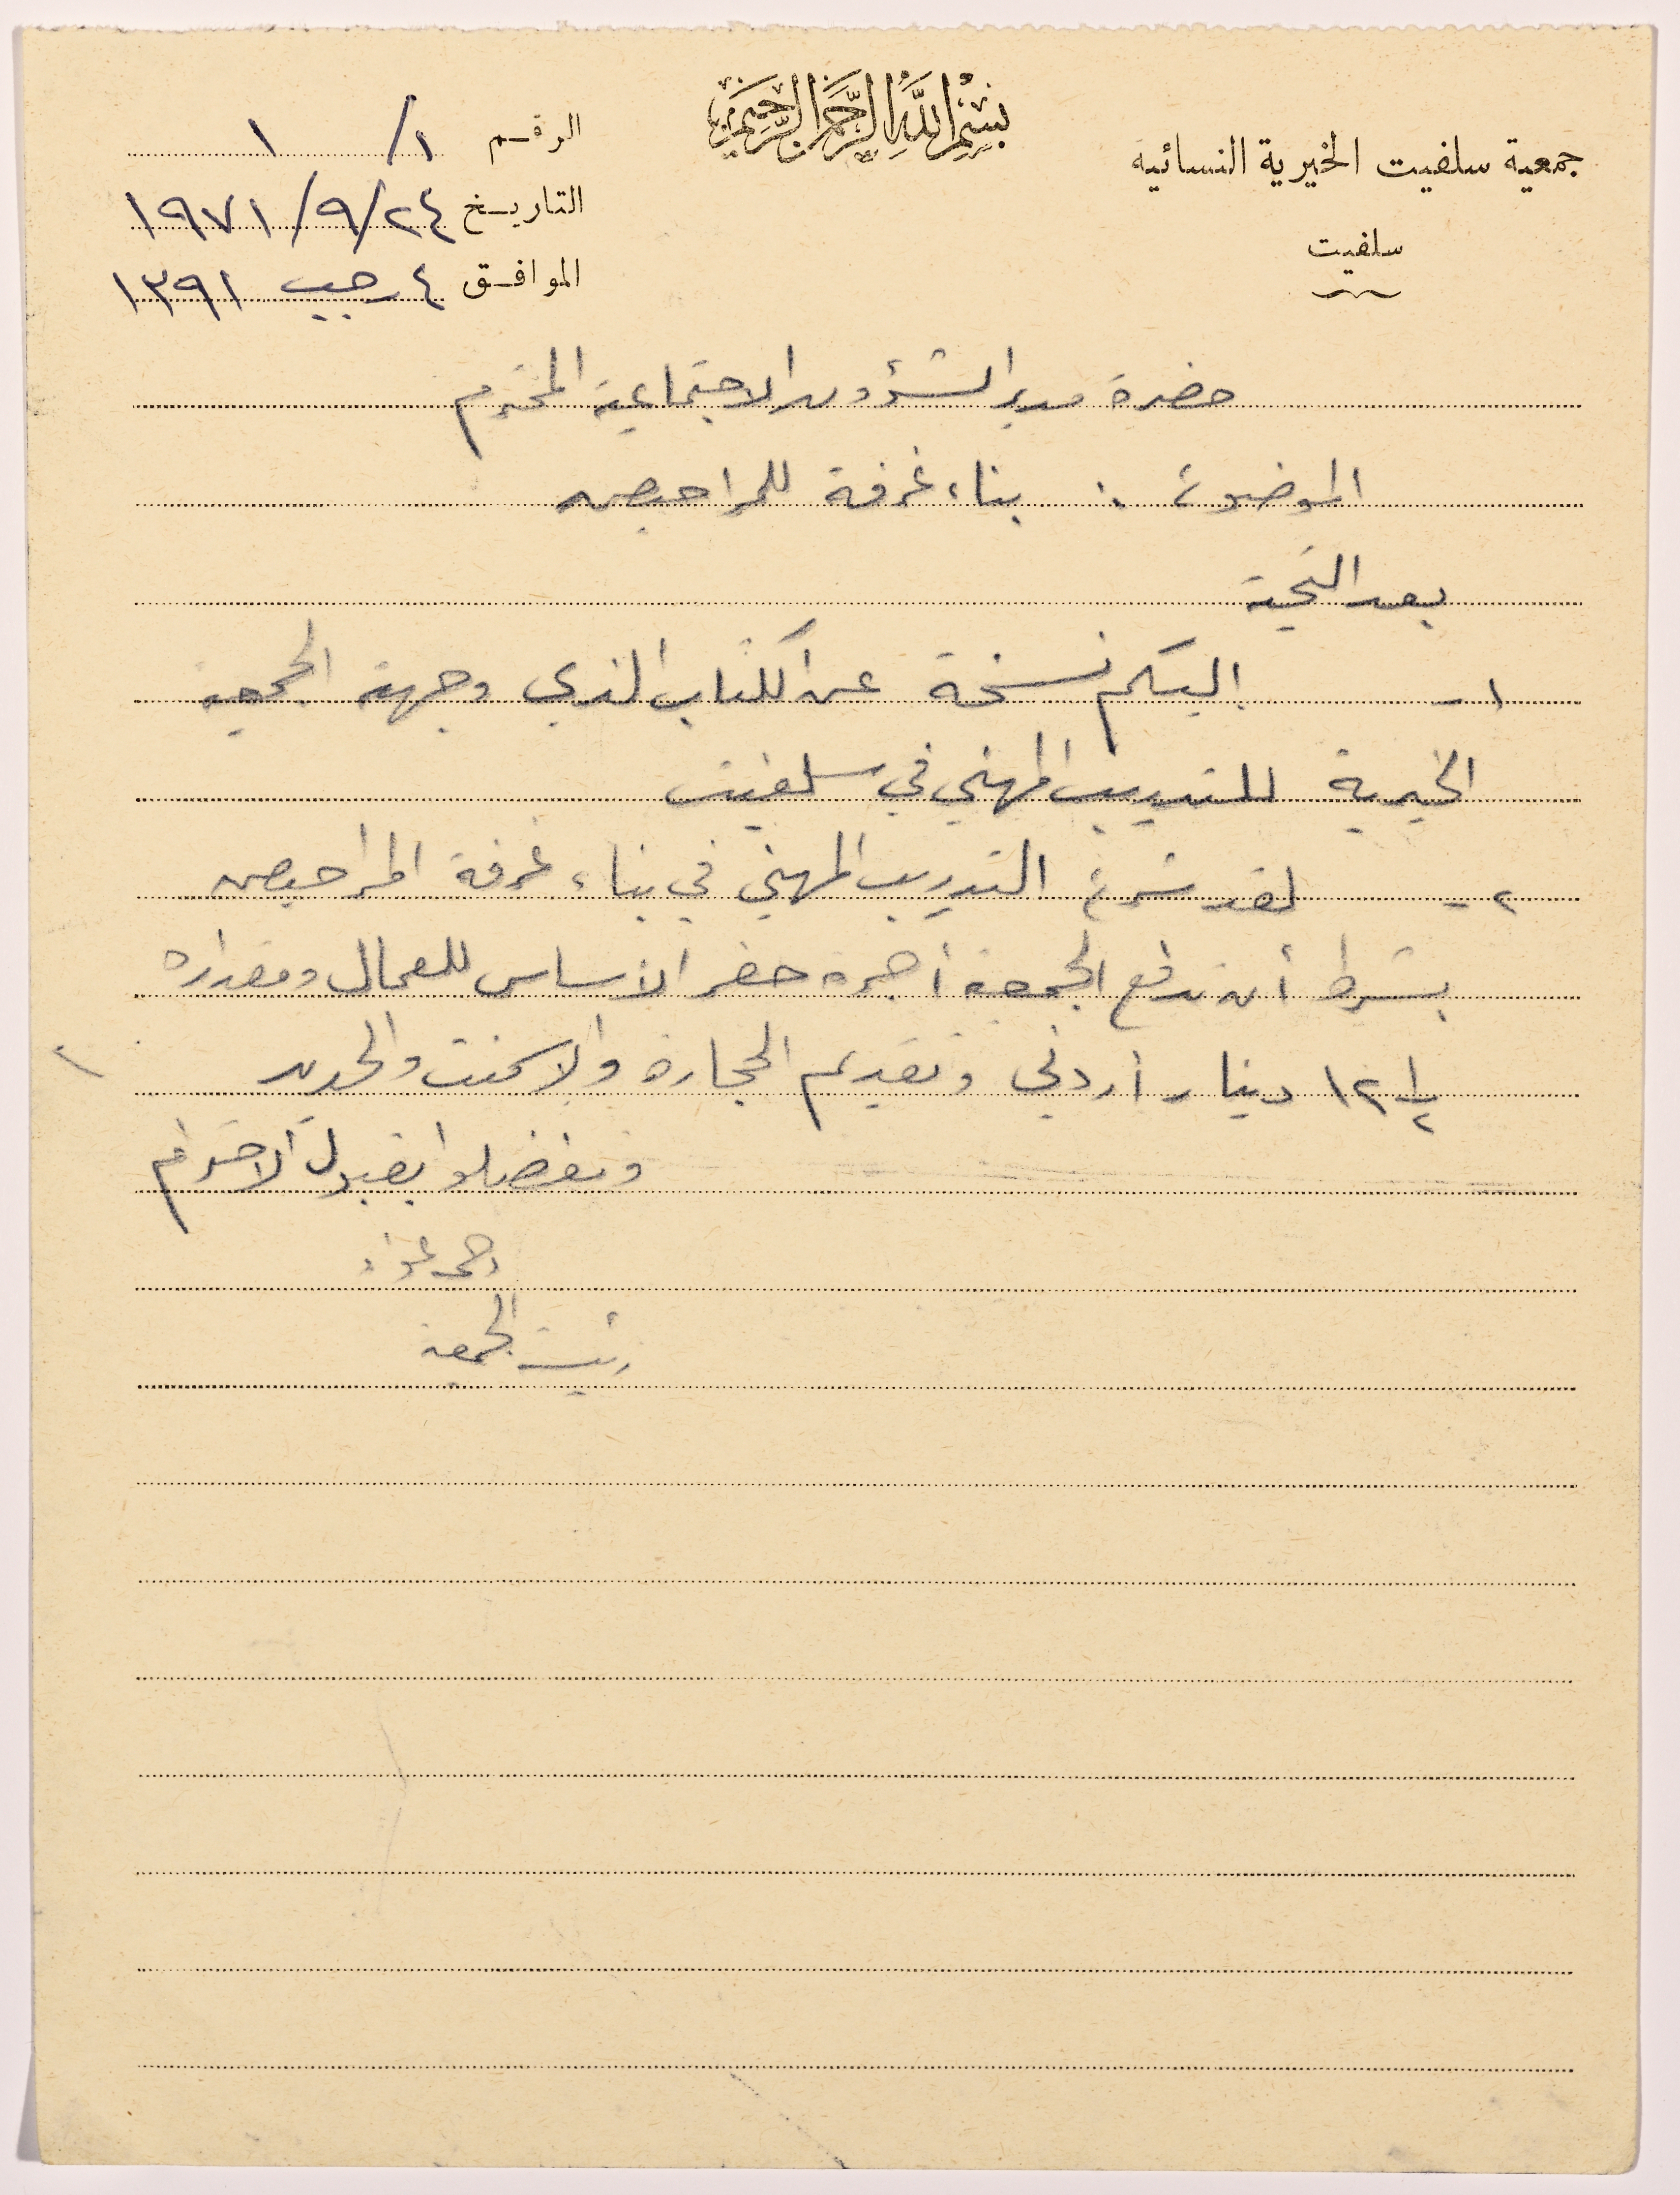 بسم الله الرحمن الرحيم
جمعية سلفيت الخيرية النسائيه
سلفيت
الرقم ١/ ١
التاريخ ٢٤/٩/١٩٧١
الموافق ٤ رجب ١٣٩١
حضرة مدير الشؤون الاجتماعية المحترم
الموضوع : بناء غرفة للمراحيض
بعد التحية
١- اليكم نسخة عن الكتاب الذي وجهته الجمعية
الخيرية للتدريب المهني في سلفيت
٢- لقد شرع التدريب المهني في بناء غرفة المراحيض
بشرط أن تدفع الجمعية أجرة حفر الأساس للعمال ومقداره
١٢ ١/٢ دينار أردني وتقديم الحجارة والاسمنت والحديد
وتفضلوا بقبول الاحترام
رئيسة الجمعية